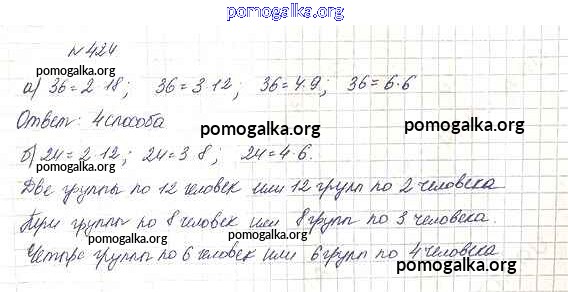 pomogalka.org
№424
pomogalka.org
а) 36=2·18; 36=3·12; 36=4·9; 36=6·6
Ответ: 4 способа
pomogalka.org
pomogalka.org
б) 24=2·12; 24=3·8; 24=4·6.
pomogalka.org
Две группы по 12 человек или 12 групп по 2 человека
Три группы по 8 человек или 8 групп по 3 человека.
pomogalka.org
Четыре группы по 6 человек или 6 групп по 4 человека
pomogalka.org